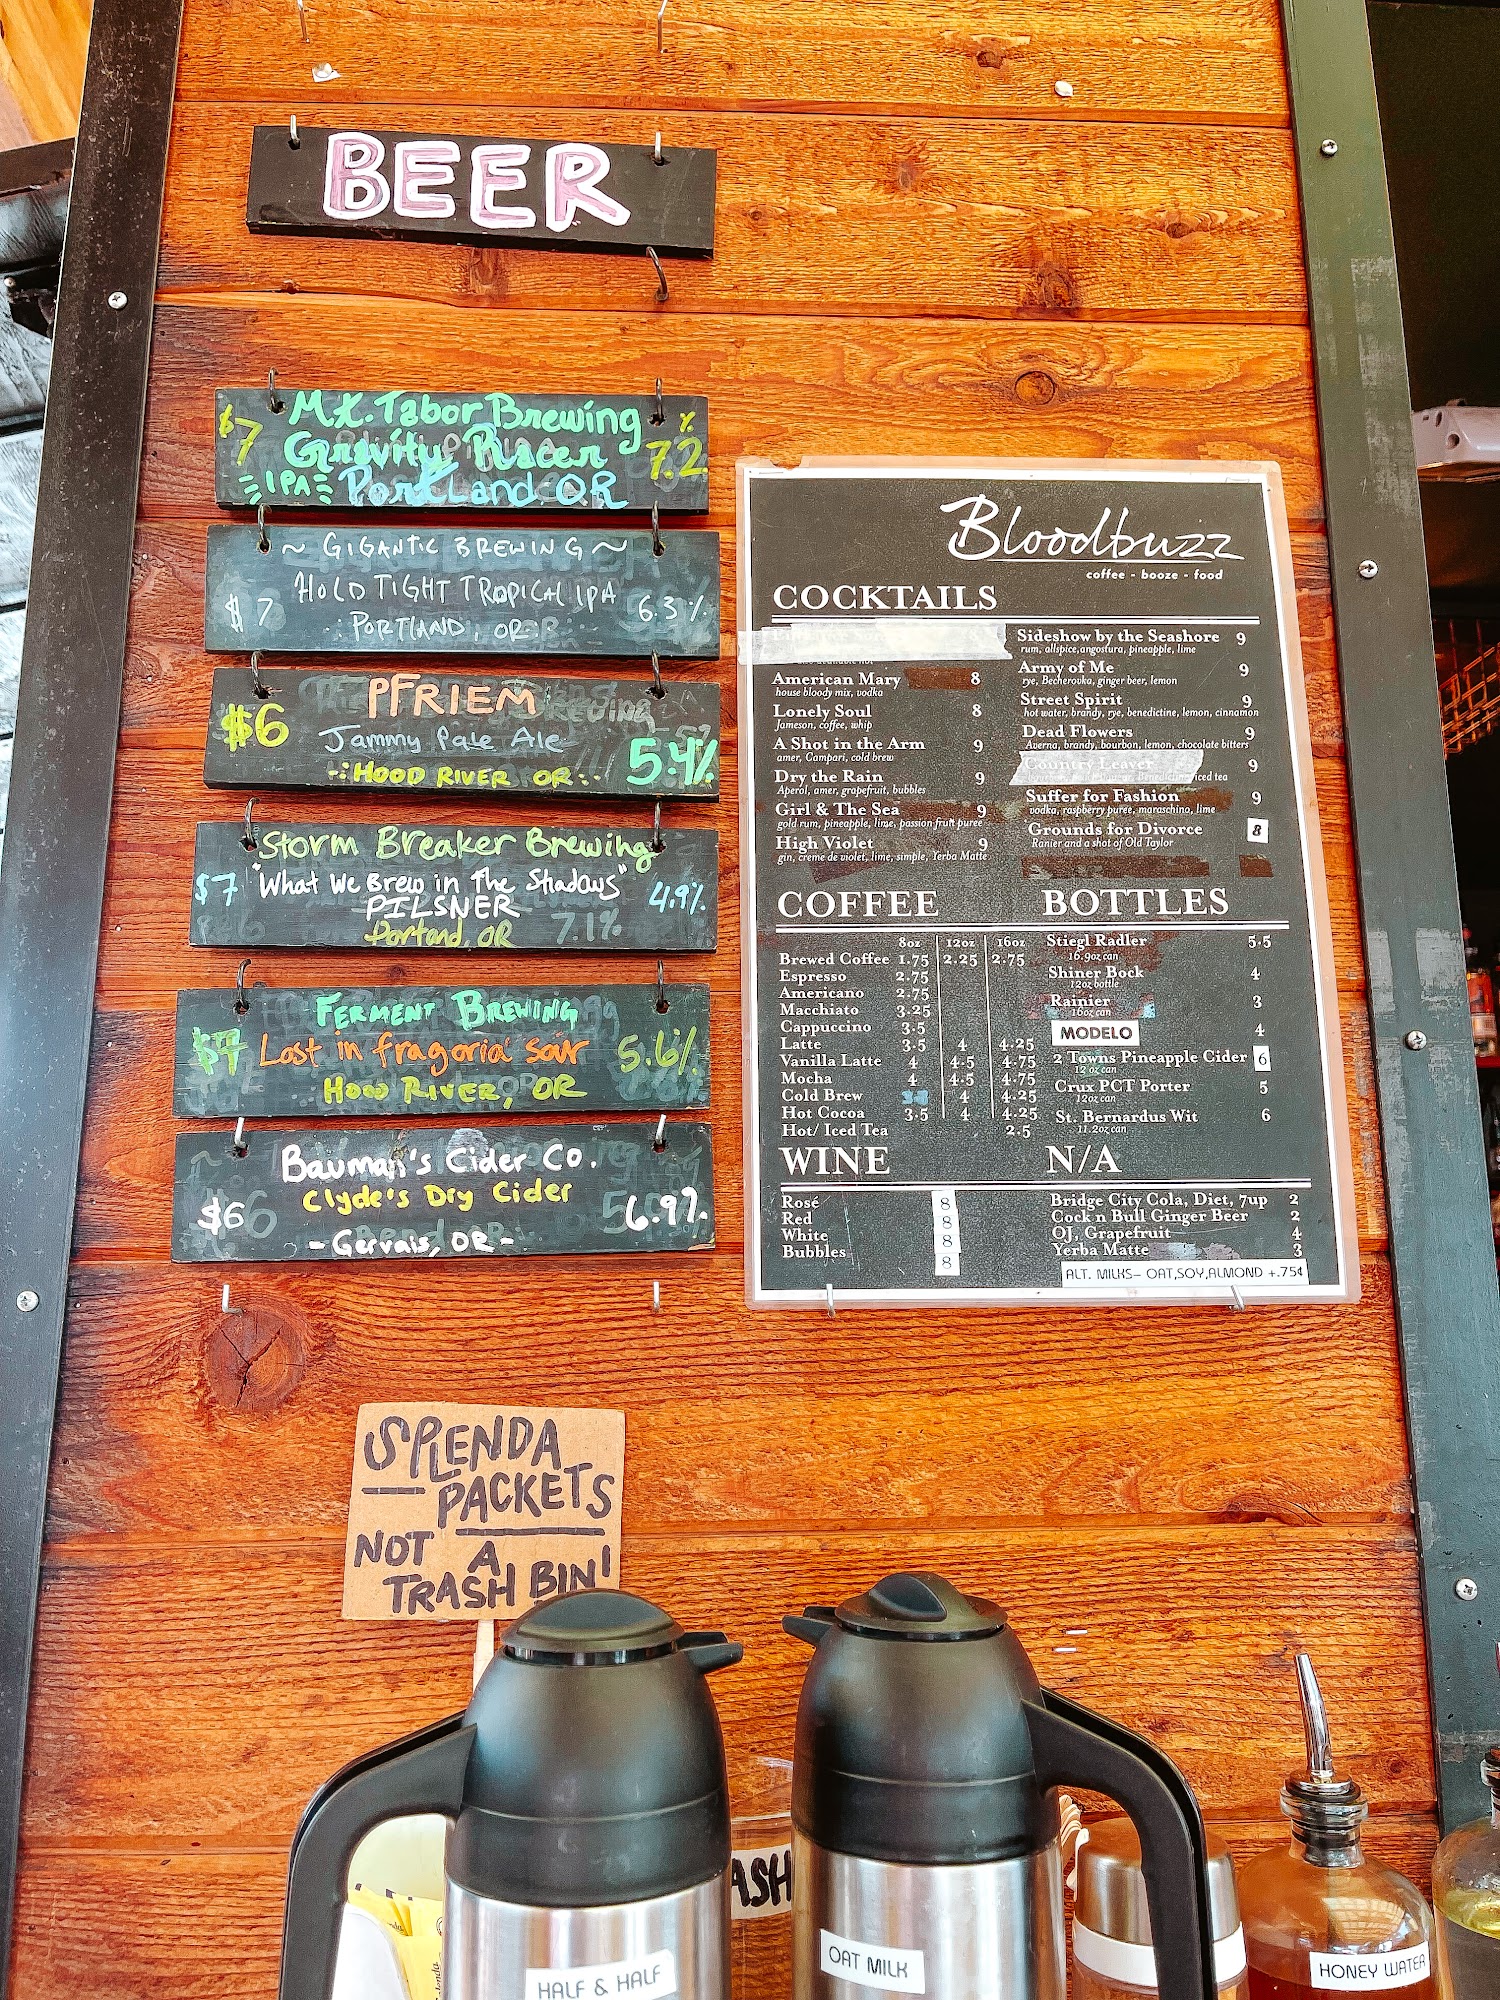 BEER
Mt. Tabor Brewing
$7 Gravity Racer 7.2%
IPA Portland, OR
~ GIGANTIC BREWING ~
HOLD TIGHT TROPICAL IPA
$7 PORTLAND, OR 6.3%
PFRIEM
$6 Jammy Pale Ale
HOOD RIVER OR 5.4%
Storm Breaker Brewing
$7 "What We Brew in The Shadows" 4.9%
PILSNER
Portand, OR
7.1%
FERMENT BREWING
$7 Lost in fragoria sour 5.6%
HOOD RIVER, OR
Bauman's Cider Co.
Clyde's Dry Cider
$6 6.9%
- Gervais, OR -
Bloodbuzz
coffee - booze - food
COCKTAILS
American Mary 8
house bloody mix, vodka
Lonely Soul 8
Jameson, coffee, whip
A Shot in the Arm 9
amer, Campari, cold brew
Dry the Rain 9
Aperol, amer, grapefruit, bubbles
Girl & The Sea 9
gold rum, pineapple, lime, passion fruit puree
High Violet 9
gin, creme de violet, lime, simple, Yerba Matte
Sideshow by the Seashore 9
rum, allspice,angostura, pineapple, lime
Army of Me 9
rye, Becherovka, ginger beer, lemon
Street Spirit 9
hot water, brandy, rye, benedictine, lemon, cinnamon
Dead Flowers 9
Averna, brandy, bourbon, lemon, chocolate bitters
Country Leaver 9
Benedictine, iced tea
Suffer for Fashion 9
vodka, raspberry puree, maraschino, lime
Grounds for Divorce 8
Ranier and a shot of Old Taylor
COFFEE
8oz 12oz 16oz
Brewed Coffee 1.75 2.25 2.75
Espresso 2.75
Americano 2.75
Macchiato 3.25
Cappuccino 3.5
Latte 3.5 4 4.25
Vanilla Latte 4 4.5 4.75
Mocha 4 4.5 4.75
Cold Brew 4 4.25
Hot Cocoa 3.5 4 4.25
Hot/ Iced Tea 2.5
BOTTLES
Stiegl Radler 5.5
16.9oz can
Shiner Bock 4
12oz bottle
Rainier 3
16oz can
MODELO 4
2 Towns Pineapple Cider 6
12 oz can
Crux PCT Porter 5
12oz can
St. Bernardus Wit 6
11.2oz can
WINE
Rosé 8
Red 8
White 8
Bubbles 8
N/A
Bridge City Cola, Diet, 7up 2
Cock n Bull Ginger Beer 2
OJ, Grapefruit 4
Yerba Matte 3
ALT. MILKS- OAT,SOY,ALMOND +.75¢
SPLENDA
PACKETS
NOT A
TRASH BIN!
ASH
HALF & HALF
OAT MILK
HONEY WATER